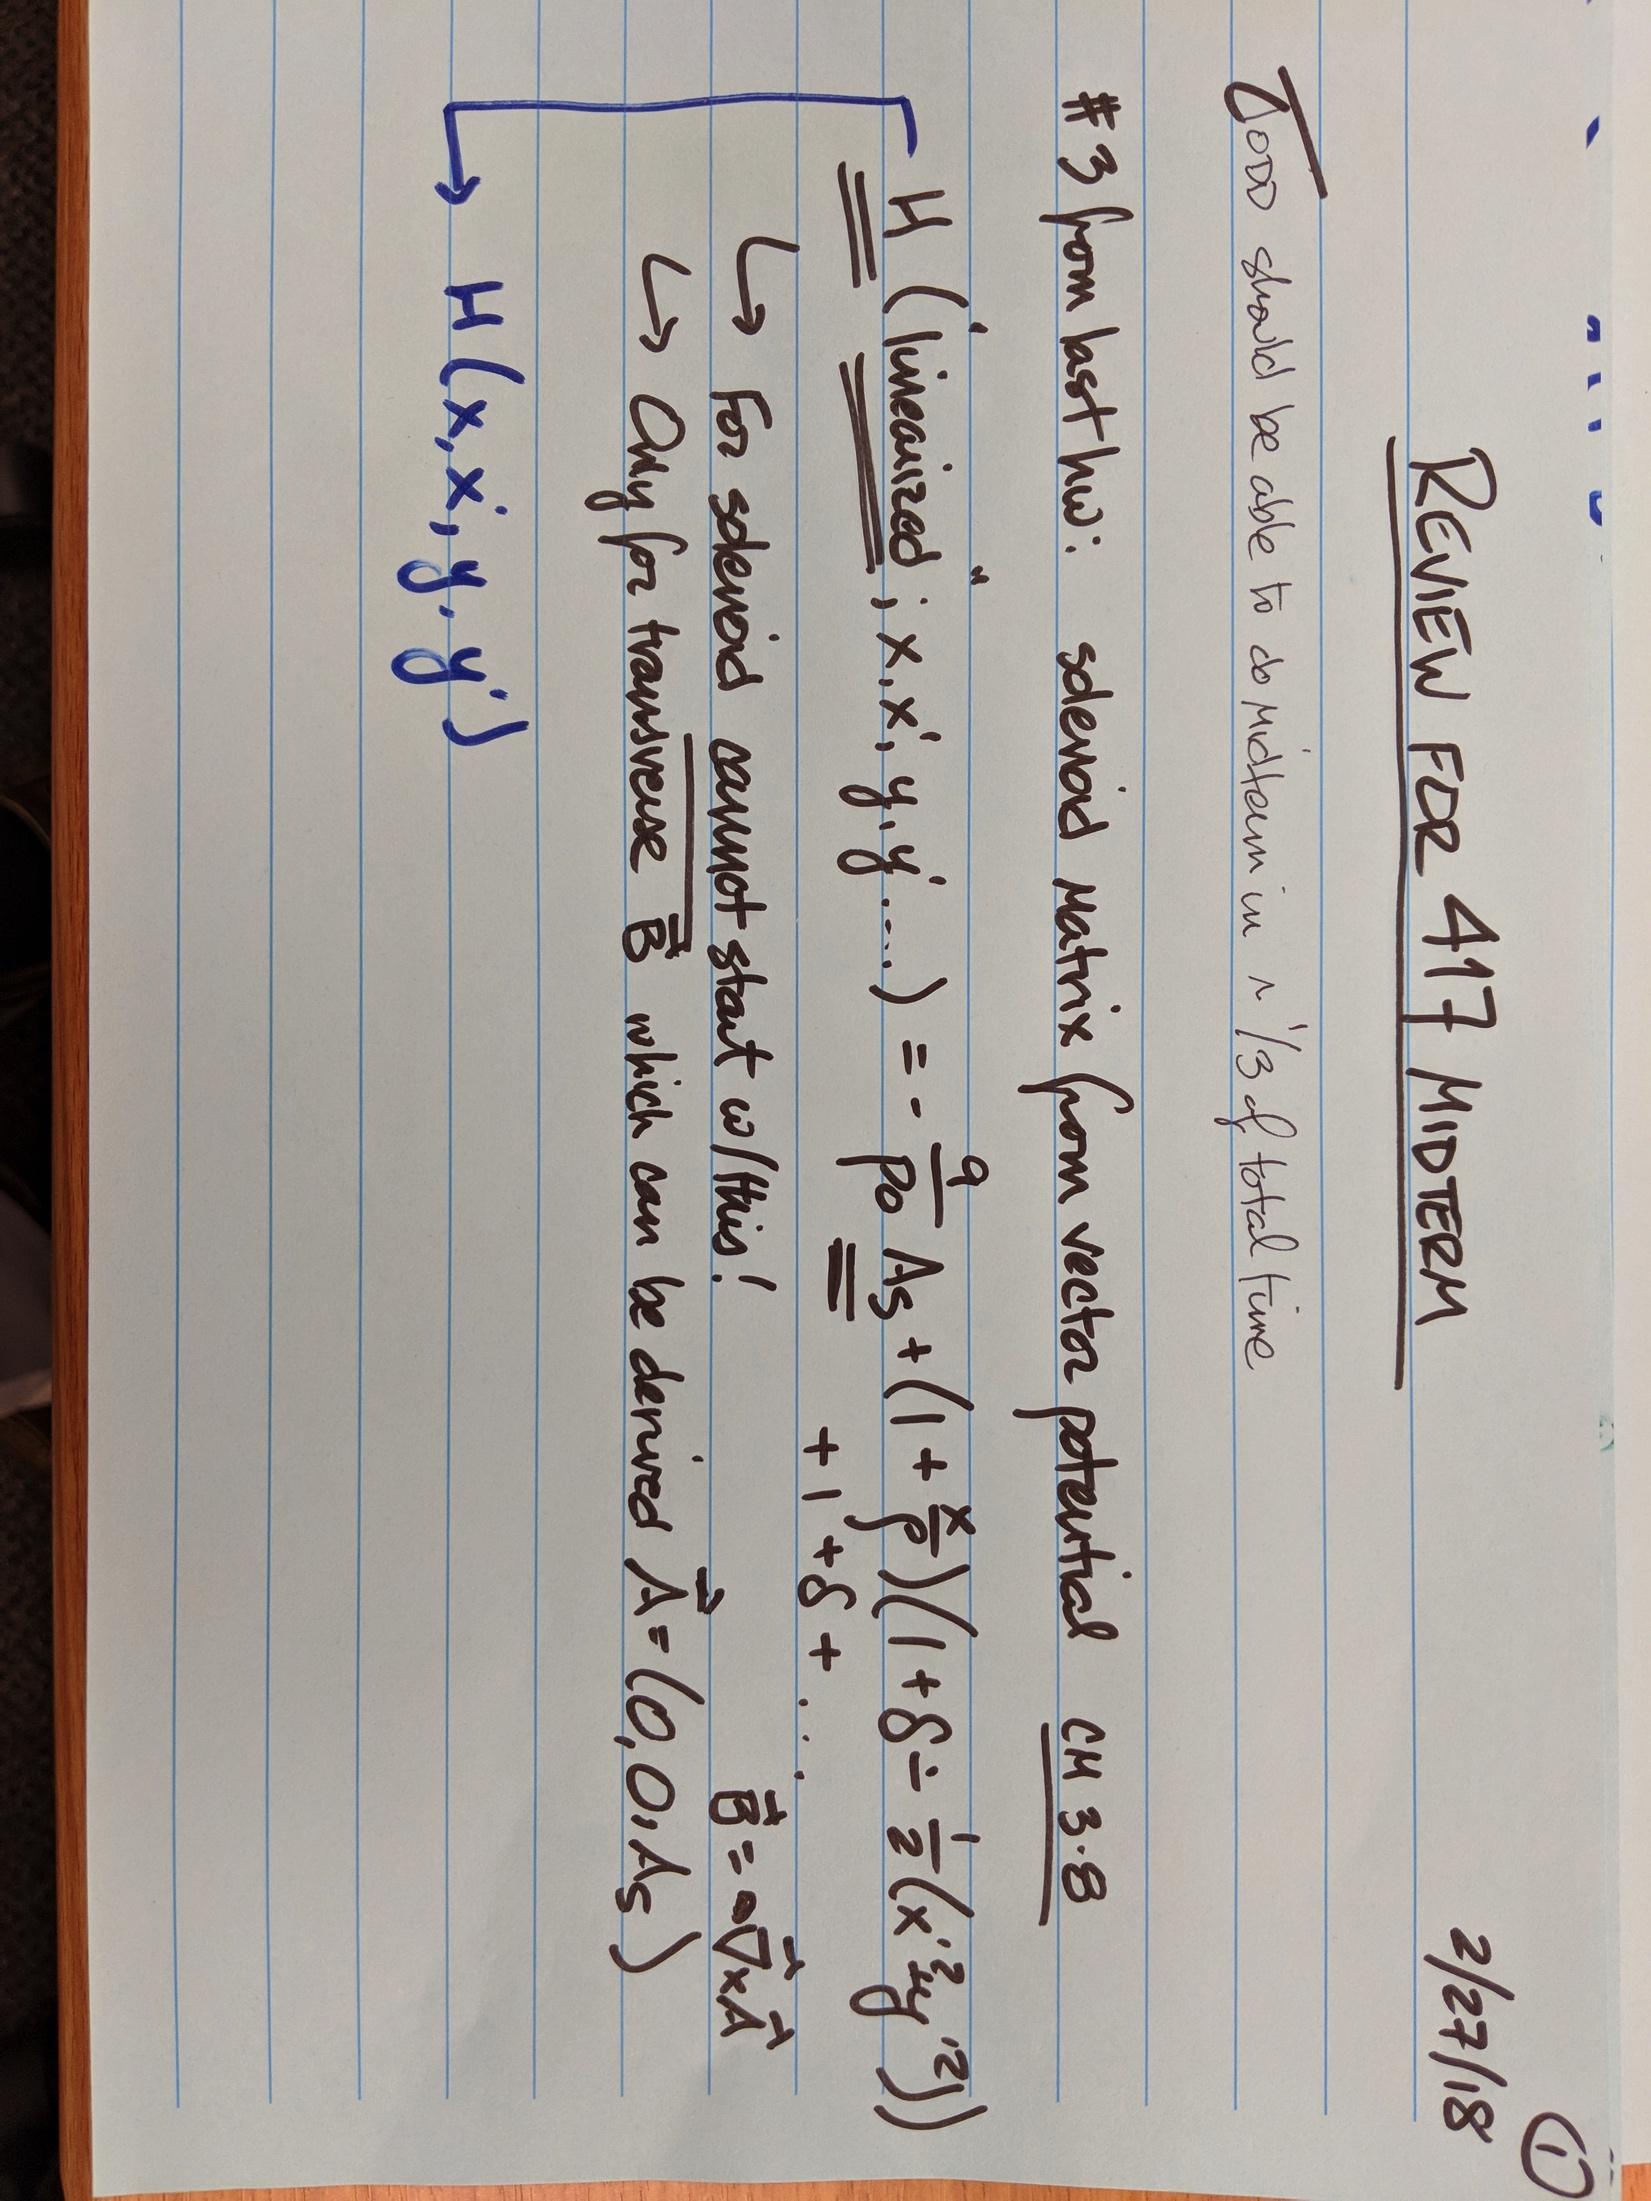 ①
REVIEW FOR 417 MIDTERM 2/27/18
TODD should be able to do midterm in ~ 1/3 of total time
#3 from last hw: solenoid matrix from vector potential CM 3.8
H ("linearized"; x, x', y, y' ....) = - q/p0 As + (1 + x/ρ)(1 + δ - 1/2 (x'² + y'²))
+ 1 + δ + ....
↳ For solenoid cannot start w/ this! B⃗ = ∇⃗ x A⃗
↳ Only for transverse B⃗ which can be derived A⃗ = (0, 0, As)
→ H (x, x', y, y')